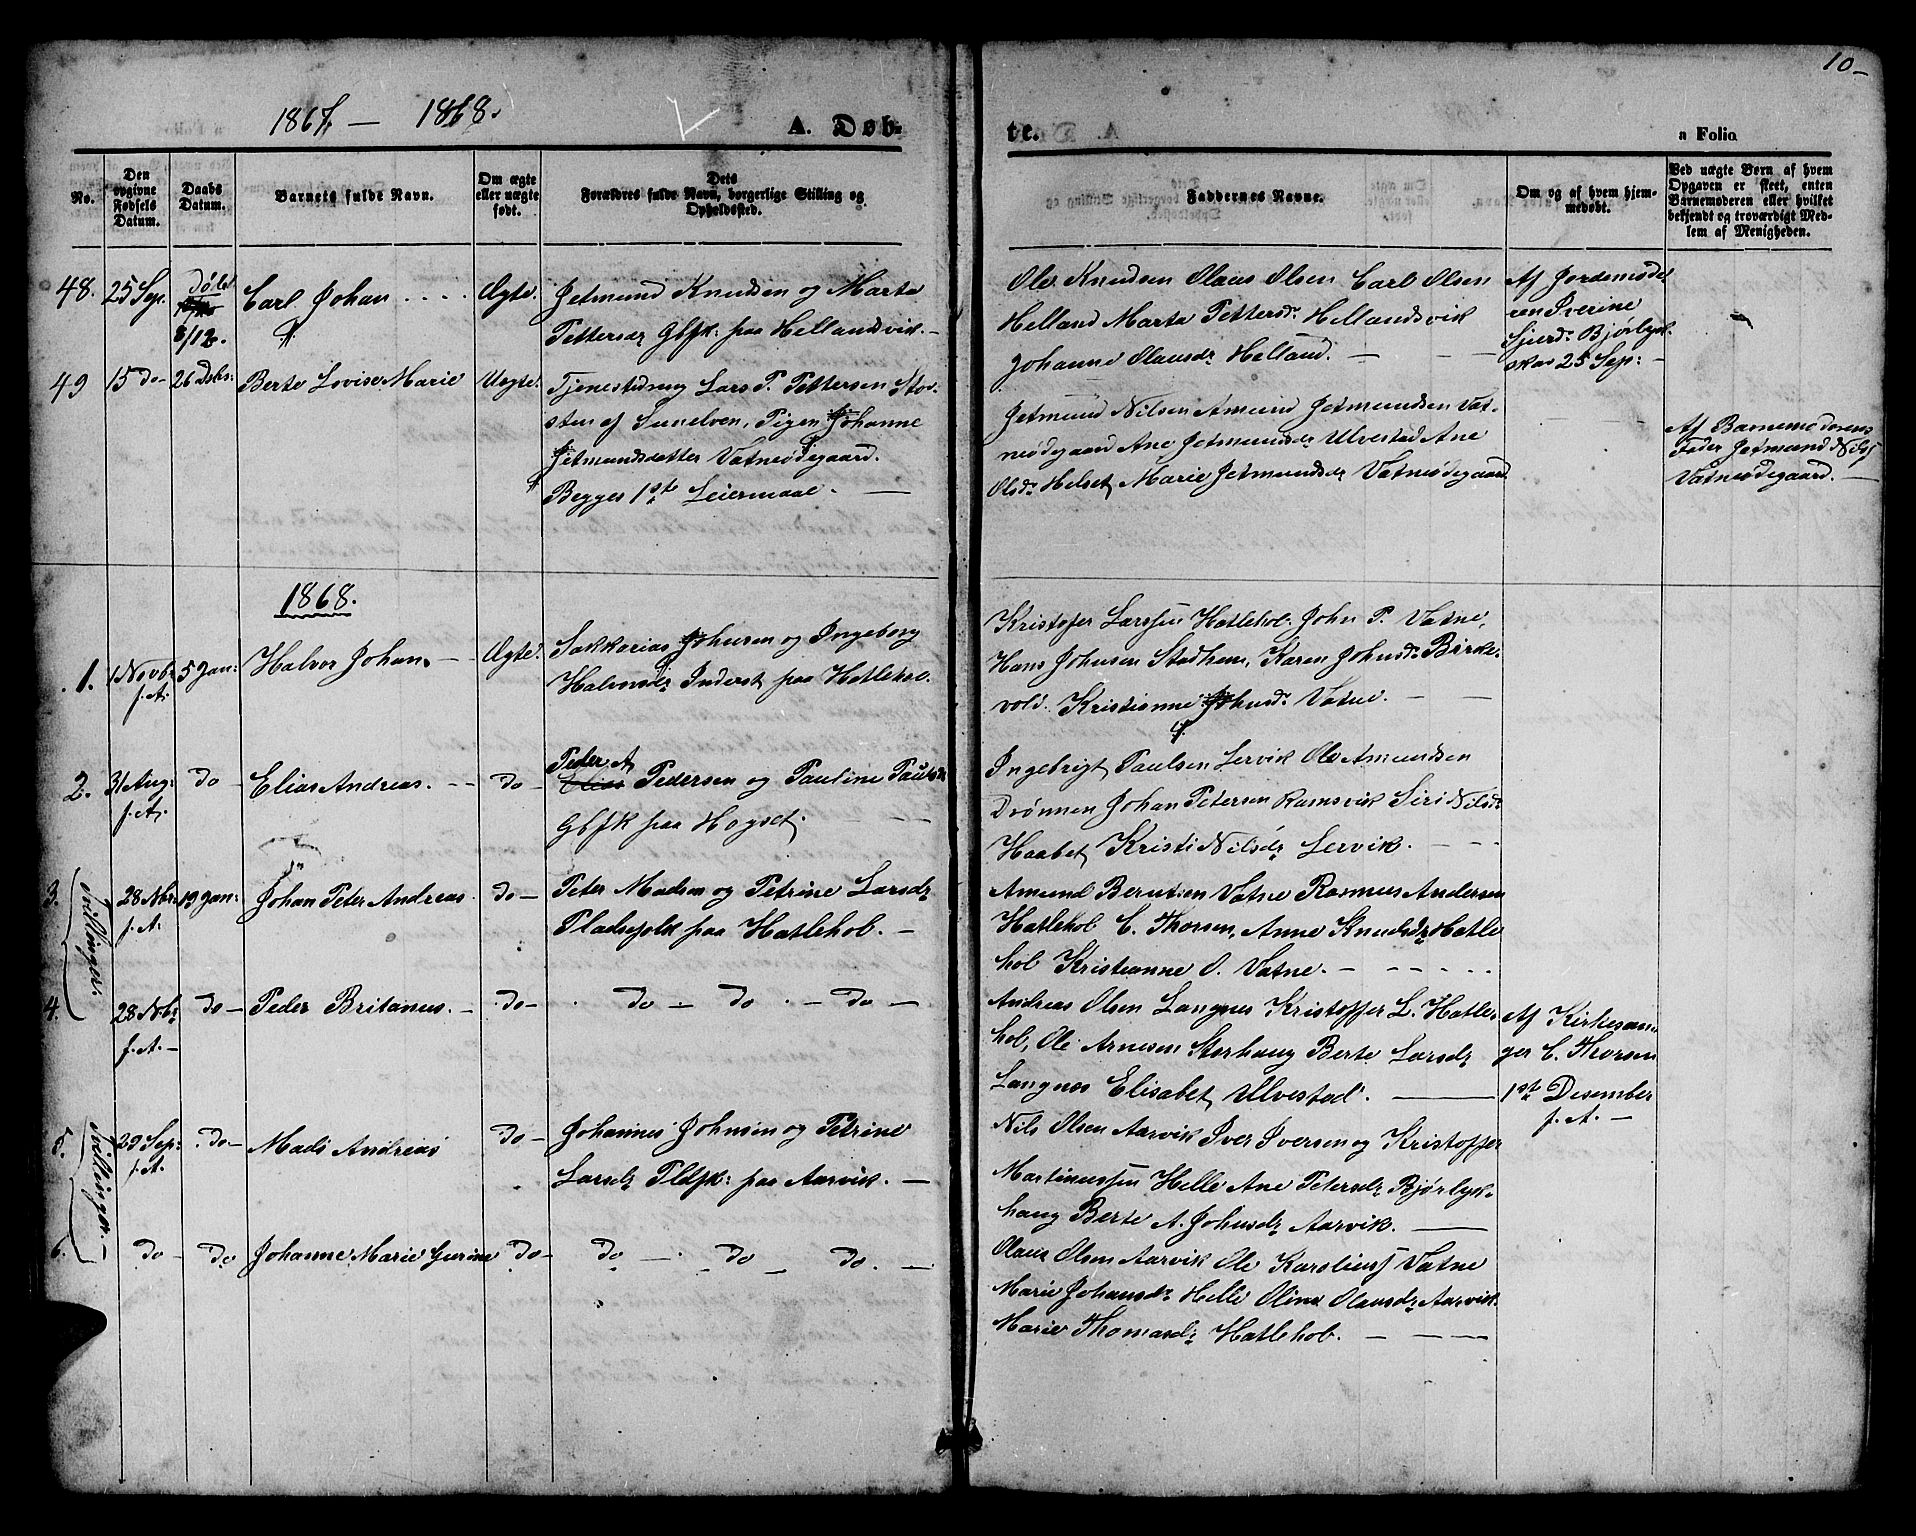 10-
1867. — 1868.
A. Døb-
te.
a Folio
No.
Den opgivne Fødsels Datum.
Daabs Datum.
Barnets fulde Navn.
Om ægte eller uægte født.
Dets Forældres fulde Navn, borgerlige Stilling og Opholdssted.
Faddernes Navne.
Om og af hvem hjem-
medøbt.
Ved uægte Børn af hvem
Opgaven er skeet, enten
Barnemoderen eller hvilket
bekjendt og troværdigt Med-
lem af Menigheden.
48. 25 Sep. Døbt 8/12. Carl Johan . . . . Ægte. Jetmund Knudsen og Marta
Pettersdr Gbfk: paa Hellandsvik. —
Ole Knudsen Olaus Olsen Carl Olsen
Helland Marta Pettersdr Hellandsvik
Johanne Olausdr Helland. — — —
Af Jordemode-
ren Iverine
Sjurdr Bjørlyk-
skar 25 Sep: —
49 15 do- 26 Desbr: Berte Lovise Marie Uegte. Tjenestedreng Lars P. Pettersen Stor-
sten af Sunelven, Pigen Johanne
Jetmundsdatter Vatneødegaard.
Begges 1st Leiermaal. —
Jetmund Nilsen Amund Jetmundsen Vat-
neødegaard Ane Jetmundsdr Ulvestad Ane
Olsdr Helset Marie Jetmundsdr Vatneødegaard
Af Barnemoderens
Fader Jetmund Nils
Vatneødegaard. —
1868.
1. 1 Novbr f. A. 5 Jan: Halvor Johan. — Ægte. Sakkarias Johnsen og Ingeborg
Halvorsdr Inderst paa Hatlehol.
Kristofer Larssen Hatlehol. John P. Vatne,
Hans Johnsen Stadheim, Karen Johnsdr Birke-
vold. Kristianne Johnsdr Vatne. — —
2. 31 Aug: f. A. do — Elias Andreas. — do — Peder A
Elias Pedersen og Pauline Paulsdr
Gbfk paa Hogset. — —
Ingebrigt Paulsen Lervik Ole Amundsen
Drønnen Johan Petersen Ramsvik Siri Nilsdr
Haabet Kristi Nilsdr Lervik. — — —
3. Tvillinger. 28 Nbr. f. A. 19 Jan: Johan Peter Andreas do — Peter Madsen og Petrine Larsdr
Pladsfolk paa Hatlehol. —
Amund Berntsen Vatne Rasmus Andersen
Hatlehol C. Thorsen, Anne Knudsdr Hatle
hol Kristianne O. Vatne. — — — —
4. 28 Nbr f. A. — do — Peder Britanus. — do — do — do — do —
Andreas Olsen Langnes Kristoffer L. Hatle-
hol, Ole Arnesen Storhaug Berte Larsdr
Langnes Elisabet Ulvestad. —
Af Kirkesan-
ger C. Thorsen
1st Desember
f. A. —
5. Tvillinger. — 29 Sep: f. A. do — Mads Andreas do — Johannes Johnsen og Petrine
Larsdr Pldfk: paa Aarvik. —
Nils Olsen Aarvik Iver Iversen og Kristoffer
Martinussen Helle Ane Petersdr Bjørlyk-
haug Berte A. Johnsdr Aarvik. —
6. do — do Johanne Marie Gurine do — do — do — do. —
Olaus Olsen Aarvik Ole Karoliuss Vatne
Marie Johansdr Helle Olina Olausdr Aarvik.
Marie Thomasdr Hatlehol. — — —